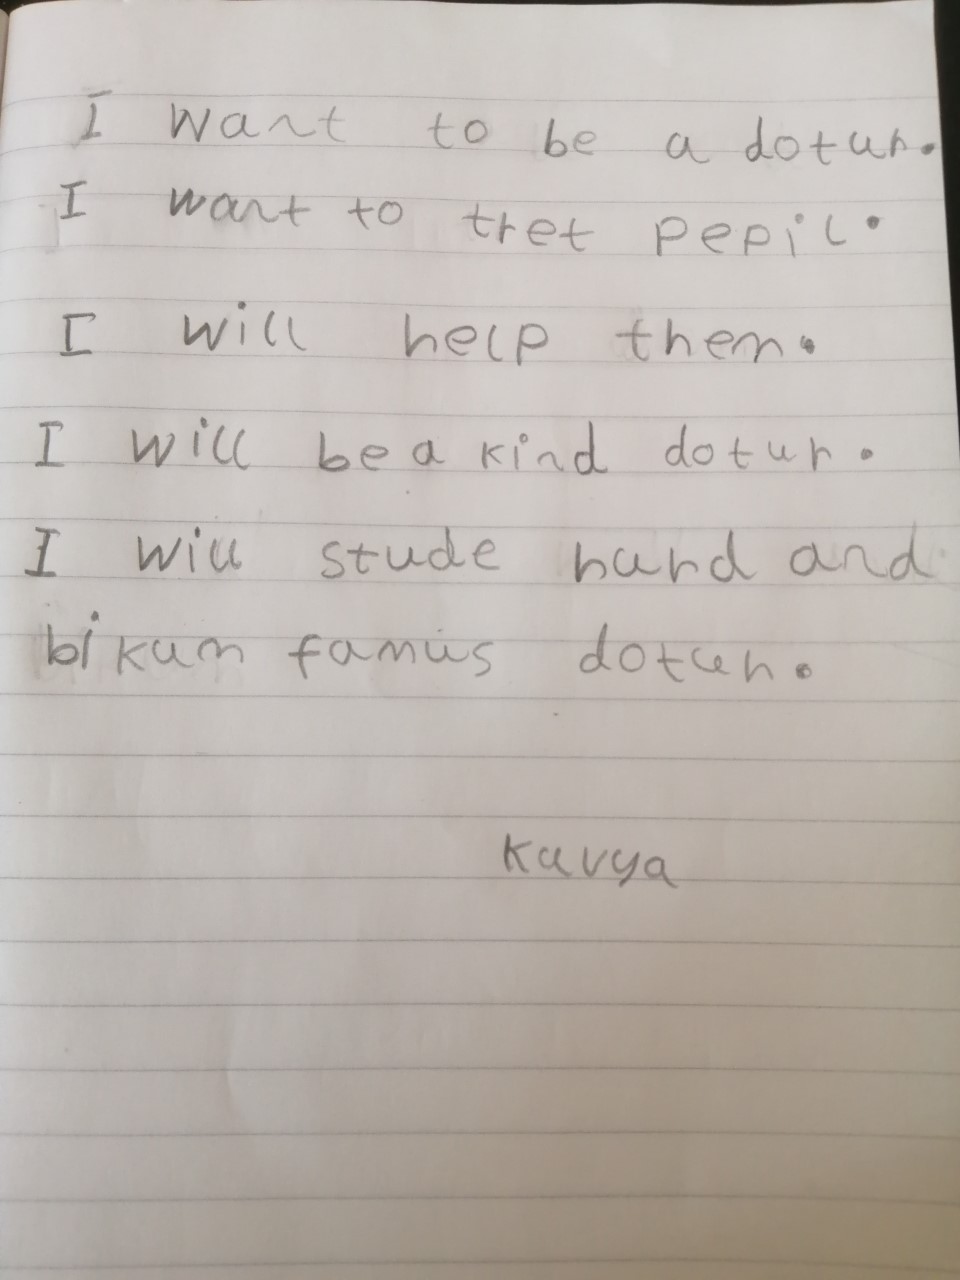 I want to be a dotur.
I want to tret pepil.
I will help them.
I will be a kind dotur.
I will stude hard and
bikum famus dotur.
Kavya